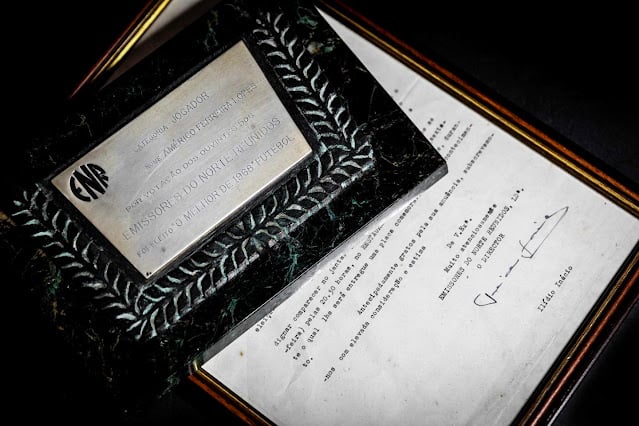 CATEGORIA JOGADOR
NOME AMÉRICO FERREIRA LOPES
POR VOTAÇÃO DOS OUVINTES DOS
EMISSORES DO NORTE REUNIDOS
FOI ELEITO "O MELHOR DE 1968" FUTEBOL
ENR
dignar comparecer no
-feira) pelas 20.30 horas, no
te o qual lhe será entregue uma placa
Antecipadamente gratos pela sua anuência, subscrevemo-
-nos com elevada consideração e estima
to.
De V.Exª.
Muito atenciosamente
EMISSORES DO NORTE REUNIDOS, Ldª.
O DIRECTOR
Ilídio Inácio